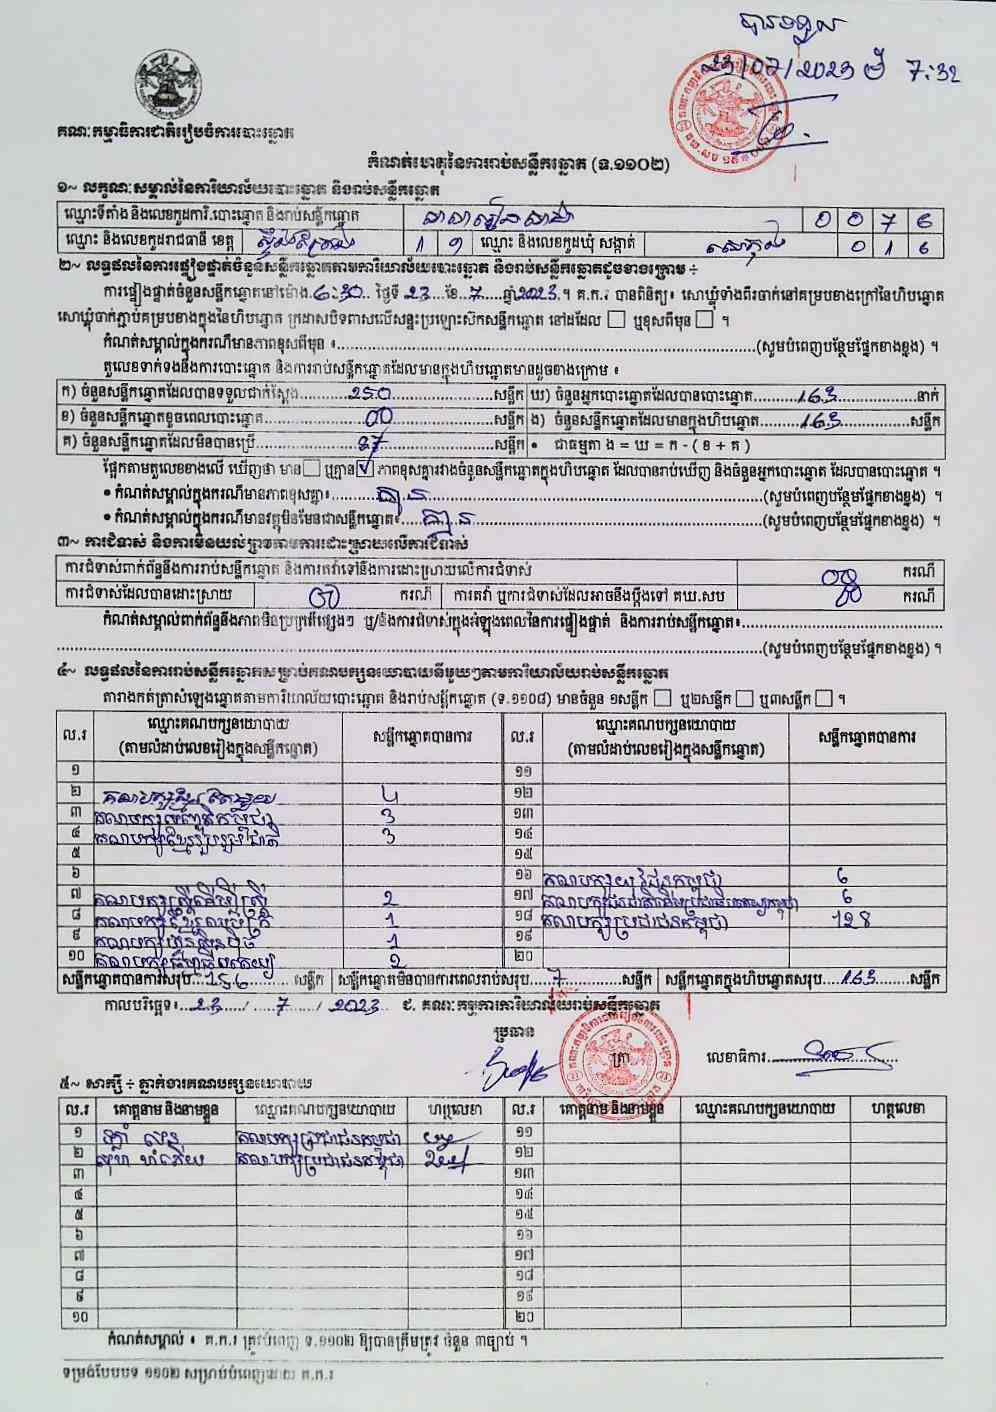 បានទទួល
23/07/2023 ម៉ 7:32
គណៈកម្មាធិការជាតិរៀបចំការបោះឆ្នោត
កំណត់ហេតុនៃការរាប់សន្លឹកឆ្នោត (ទ.១១០២)
១~ លក្ខណៈសម្គាល់នៃការិយាល័យបោះឆ្នោត និងរាប់សន្លឹកឆ្នោត
ឈ្មោះទីតាំង និងលេខកូដការិ.បោះឆ្នោត និងរាប់សន្លឹកឆ្នោត 0 0 7 6
ឈ្មោះ និងលេខកូដរាជធានី ខេត្ត ស្ទឹងត្រែង 1 9 ឈ្មោះ និងលេខកូដឃុំ សង្កាត់ សេកុង 0 1 6
២~ លទ្ធផលនៃការផ្ទៀងផ្ទាត់ចំនួនសន្លឹកឆ្នោតតាមការិយាល័យបោះឆ្នោត និងរាប់សន្លឹកឆ្នោតដូចខាងក្រោម ÷
ការផ្ទៀងផ្ទាត់ចំនួនសន្លឹកឆ្នោតនៅម៉ោង 6:30 ថ្ងៃទី 23 ខែ 7 ឆ្នាំ 2023 ។ គ.ក.រ បានពិនិត្យ៖ សោឃ្លុំទាំងពីរចាក់នៅគម្របខាងក្រៅនៃហិបឆ្នោត
សោឃ្លុំចាក់ភ្ជាប់គម្របខាងក្នុងនៃហិបឆ្នោត ក្រដាសបិទពាសលើសន្ទះប្រឡោះស៊កសន្លឹកឆ្នោត នៅដដែល ☐ ឬខុសពីមុន ☐ ។
កំណត់សម្គាល់ក្នុងករណីមានភាពខុសពីមុន ៖ (សូមបំពេញបន្ថែមផ្នែកខាងខ្នង) ។
តួលេខទាក់ទងនឹងការបោះឆ្នោត និងការរាប់សន្លឹកឆ្នោតដែលមានក្នុងហិបឆ្នោតមានដូចខាងក្រោម ៖
ក) ចំនួនសន្លឹកឆ្នោតដែលបានទទួលជាក់ស្តែង 250 សន្លឹក ឃ) ចំនួនអ្នកបោះឆ្នោតដែលបានបោះឆ្នោត 163 នាក់
ខ) ចំនួនសន្លឹកឆ្នោតខូចពេលបោះឆ្នោត 00 សន្លឹក ង) ចំនួនសន្លឹកឆ្នោតដែលមានក្នុងហិបឆ្នោត 163 សន្លឹក
គ) ចំនួនសន្លឹកឆ្នោតដែលមិនបានប្រើ 87 សន្លឹក • ជាធម្មតា ង = ឃ = ក - ( ខ + គ )
ផ្អែកតាមតួលេខខាងលើ ឃើញថា មាន ☐ ឬគ្មាន ☑ ភាពខុសគ្នារវាងចំនួនសន្លឹកឆ្នោតក្នុងហិបឆ្នោត ដែលបានរាប់ឃើញ និងចំនួនអ្នកបោះឆ្នោត ដែលបានបោះឆ្នោត ។
• កំណត់សម្គាល់ក្នុងករណីមានភាពខុសគ្នា៖ គ្មាន (សូមបំពេញបន្ថែមផ្នែកខាងខ្នង) ។
• កំណត់សម្គាល់ក្នុងករណីមានវត្ថុមិនមែនជាសន្លឹកឆ្នោត៖ គ្មាន (សូមបំពេញបន្ថែមផ្នែកខាងខ្នង) ។
៣~ ការជំទាស់ និងការមិនយល់ព្រមតាមការដោះស្រាយលើការជំទាស់
ការជំទាស់ពាក់ព័ន្ធនឹងការរាប់សន្លឹកឆ្នោត និងការតវ៉ាទៅនឹងការដោះស្រាយលើការជំទាស់ 00 ករណី
ការជំទាស់ដែលបានដោះស្រាយ 00 ករណី ការតវ៉ា ឬការជំទាស់ដែលអាចនឹងប្តឹងទៅ គឃ.សប 00 ករណី
កំណត់សម្គាល់ពាក់ព័ន្ធនឹងភាពមិនប្រក្រតីផ្សេងៗ ឬ/និងការជំទាស់ក្នុងអំឡុងពេលនៃការផ្ទៀងផ្ទាត់ និងការរាប់សន្លឹកឆ្នោត៖
(សូមបំពេញបន្ថែមផ្នែកខាងខ្នង) ។
៤~ លទ្ធផលនៃការរាប់សន្លឹកឆ្នោតសម្រាប់គណបក្សនយោបាយនីមួយៗតាមការិយាល័យរាប់សន្លឹកឆ្នោត
តារាងកត់ត្រាសំឡេងឆ្នោតតាមការិយាល័យបោះឆ្នោត និងរាប់សន្លឹកឆ្នោត (ទ.១១០៨) មានចំនួន ១សន្លឹក ☐ ឬ២សន្លឹក ☐ ឬ៣សន្លឹក ☐ ។
ល.រ ឈ្មោះគណបក្សនយោបាយ (តាមលំដាប់លេខរៀងក្នុងសន្លឹកឆ្នោត) សន្លឹកឆ្នោតបានការ ល.រ ឈ្មោះគណបក្សនយោបាយ (តាមលំដាប់លេខរៀងក្នុងសន្លឹកឆ្នោត) សន្លឹកឆ្នោតបានការ
១ ១១
២ គណបក្សខ្មែរតែមួយ 4 ១២
៣ គណបក្សសំបុកឃ្មុំ 3 ១៣
៤ គណបក្សខ្មែររួបរួមជាតិ 3 ១៤
៥ ១៥
៦ ១៦ គណបក្សយុវជនកម្ពុជា 6
៧ គណបក្សស្ត្រីដើម្បីស្ត្រី 2 ១៧ 6
៨ 1 ១៨ គណបក្សប្រជាជនកម្ពុជា 128
៩ 1 ១៩
១០ 2 ២០
សន្លឹកឆ្នោតបានការសរុប 156 សន្លឹក សន្លឹកឆ្នោតមិនបានការពេលរាប់សរុប 7 សន្លឹក សន្លឹកឆ្នោតក្នុងហិបឆ្នោតសរុប 163 សន្លឹក
កាលបរិច្ឆេទ៖ 23 / 7 / 2023 ជ. គណៈកម្មការការិយាល័យរាប់សន្លឹកឆ្នោត
ប្រធាន ត្រា លេខាធិការ
៥~ សាក្សី ÷ ភ្នាក់ងារគណបក្សនយោបាយ
ល.រ គោត្តនាម និងនាមខ្លួន ឈ្មោះគណបក្សនយោបាយ ហត្ថលេខា ល.រ គោត្តនាម និងនាមខ្លួន ឈ្មោះគណបក្សនយោបាយ ហត្ថលេខា
១ គណបក្សប្រជាជនកម្ពុជា ១១
២ គណបក្សប្រជាជនកម្ពុជា ១២
៣ ១៣
៤ ១៤
៥ ១៥
៦ ១៦
៧ ១៧
៨ ១៨
៩ ១៩
១០ ២០
កំណត់សម្គាល់ ៖ គ.ក.រ ត្រូវបំពេញ ទ.១១០២ ឱ្យបានត្រឹមត្រូវ ចំនួន ៣ច្បាប់ ។
ទម្រង់បែបបទ ១១០២ សម្រាប់បំពេញដោយ គ.ក.រ